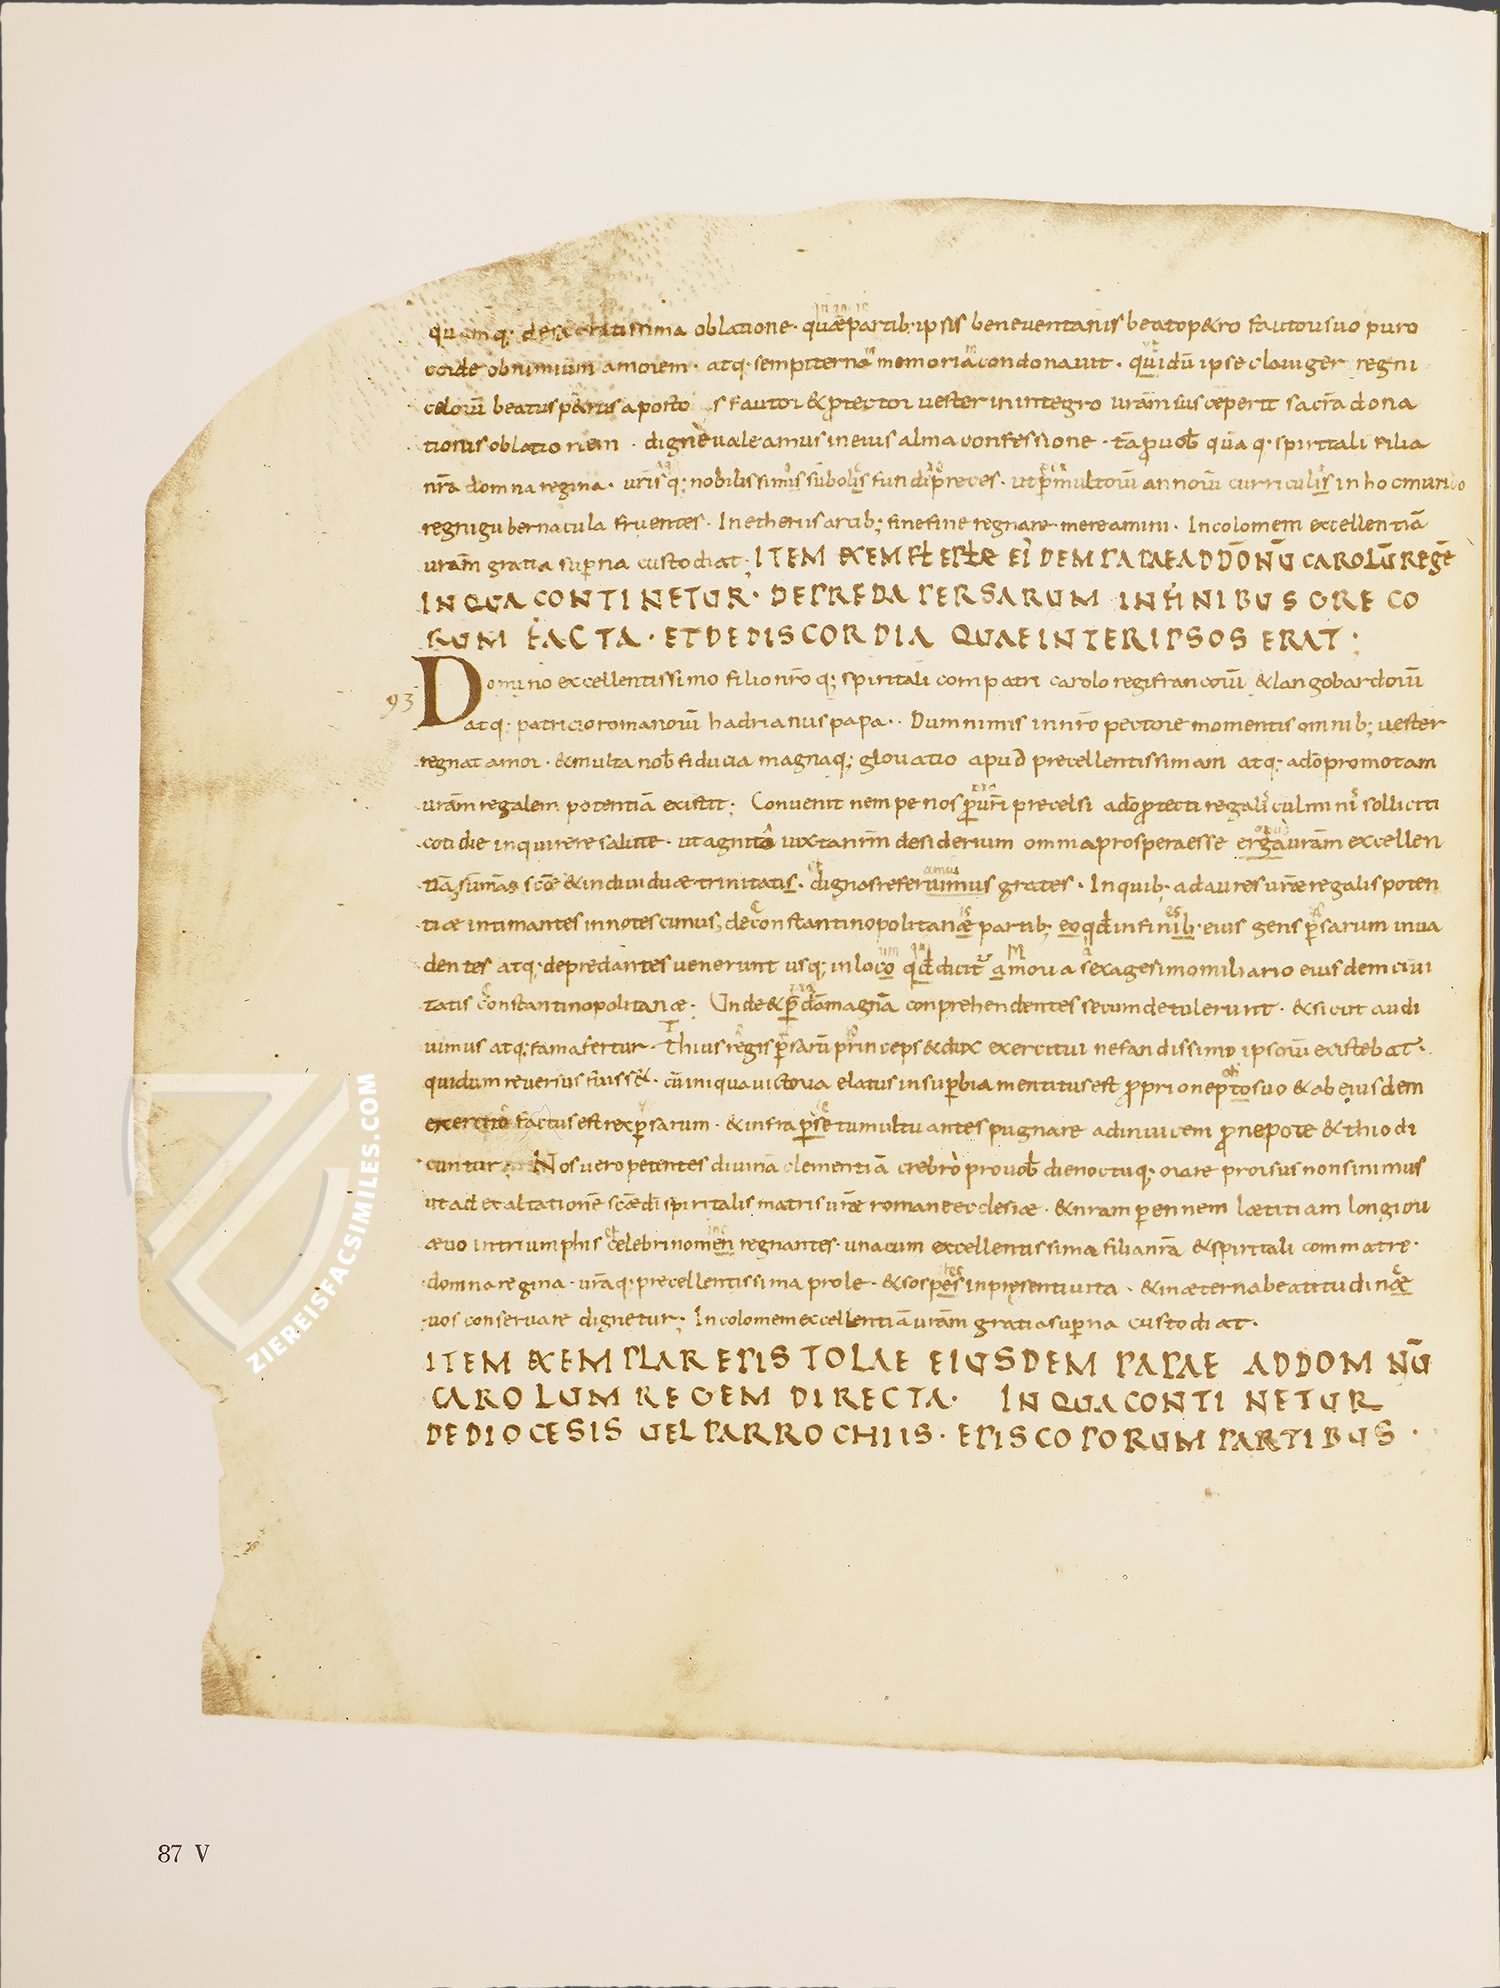 quamq; desacratissima oblatione · quæ partib; ipsis beneventanis beato p&ro fautori suo puro
corde ob nimium amorem · atq; sempiterna memoria condonavit · quidū ipse claviger regni
celorū beatus p&rus aposto s fautor & protector vester in integro vrām susceperit sacrā dona
tionis oblationem · digne valeamus in eius alma confessione · tā pro vob quā q; spiritali filia
nrā domna regina · vrisq; nobilissimis subolis fundi preces · ut p multorū annorū curriculis in hoc mundo
regni gubernacula fruentes · In etheriis arcib; sine fine regnare mereamini · Incolomem excellentiā
vrām gratia superna custodiat; ITEM EXEMPL EPLAE EIDEM PAPAE AD DŌNŪ CAROLŪ REGĒ
IN QUA CONTINETUR · DEPREDA PERSARUM IN FINIBUS GRECO
RUM FACTA · ET DE DISCORDIA QUAE INTER IPSOS ERAT;
93 Domino excellentissimo filio nrō q; spiritali compatri carolo regi francorū & langobardorū
atq; patricio romanorū hadrianus papa · Dum nimis in nrō pectore momentis omnib; vester
regnat amor · & multa nob fiducia magnaq; gloriatio apud precellentissimam atq; a dō promotam
vrām regalem potentiā existit; Convenit nempe nos p vrī precelsi a dō protecti regali culmini solliciti
cotidie inquirere salute · ut agnito iuxta nrm desiderium omnia prospera esse erga vrām excellen
tiā summas scæ & individuæ trinitatis · dignas referuimus grates · In quib; ad aures vræ regalis poten
tiæ intimantes innotescimus, de constantinopolitanæ partib; eo qd in finib; eius gens persarum inva
dentes atq; depredantes venerunt usq; in loco qd dicit amoria sexagesimo miliario eiusdem civi
tatis constantinopolitanæ · Unde & p dā magnā conprehendentes secum detulerunt · & sicut audi
vimus atq; fama fertur · Thius regis persarū princeps & dux exercitui nefandissimo ipsorū existebat ·
qui dum reversus fuiss& · cū iniqua victoria elatus in superbia mentitus est proprio nepto suo & ab eiusdem
exercito factus est rex persarum · & infra p se tumultuantes pugnare ad invicem pro nepote & thio di
cuntur · Nos vero petentes divinā clementiā crebro pro vob die noctuq; orare prorsus non sinimus
ut ad exaltationē scæ dī spiritalis matris vræ romane ecclesiæ · & nram perennem lætitiam longiori
ævo in triumphis celebri nomen regnantes · una cum excellentissima filia nrā & spiritali commatre ·
domna regina · vrāq; precellentissima prole · & sospes in presenti vita · & in æterna beatitudinæ
vos conservare dignetur; Incolomem excellentiā vrām gratia superna custodiat ·
ITEM EXEMPLAR EPISTOLAE EIUSDEM PAPAE AD DOMNŪ
CAROLUM REGEM DIRECTA · IN QUA CONTINETUR
DE DIOCESIS UEL PARROCHIIS · EPISCOPORUM PARTIBUS ·
ZIEREISFACSIMILES.COM
87 V